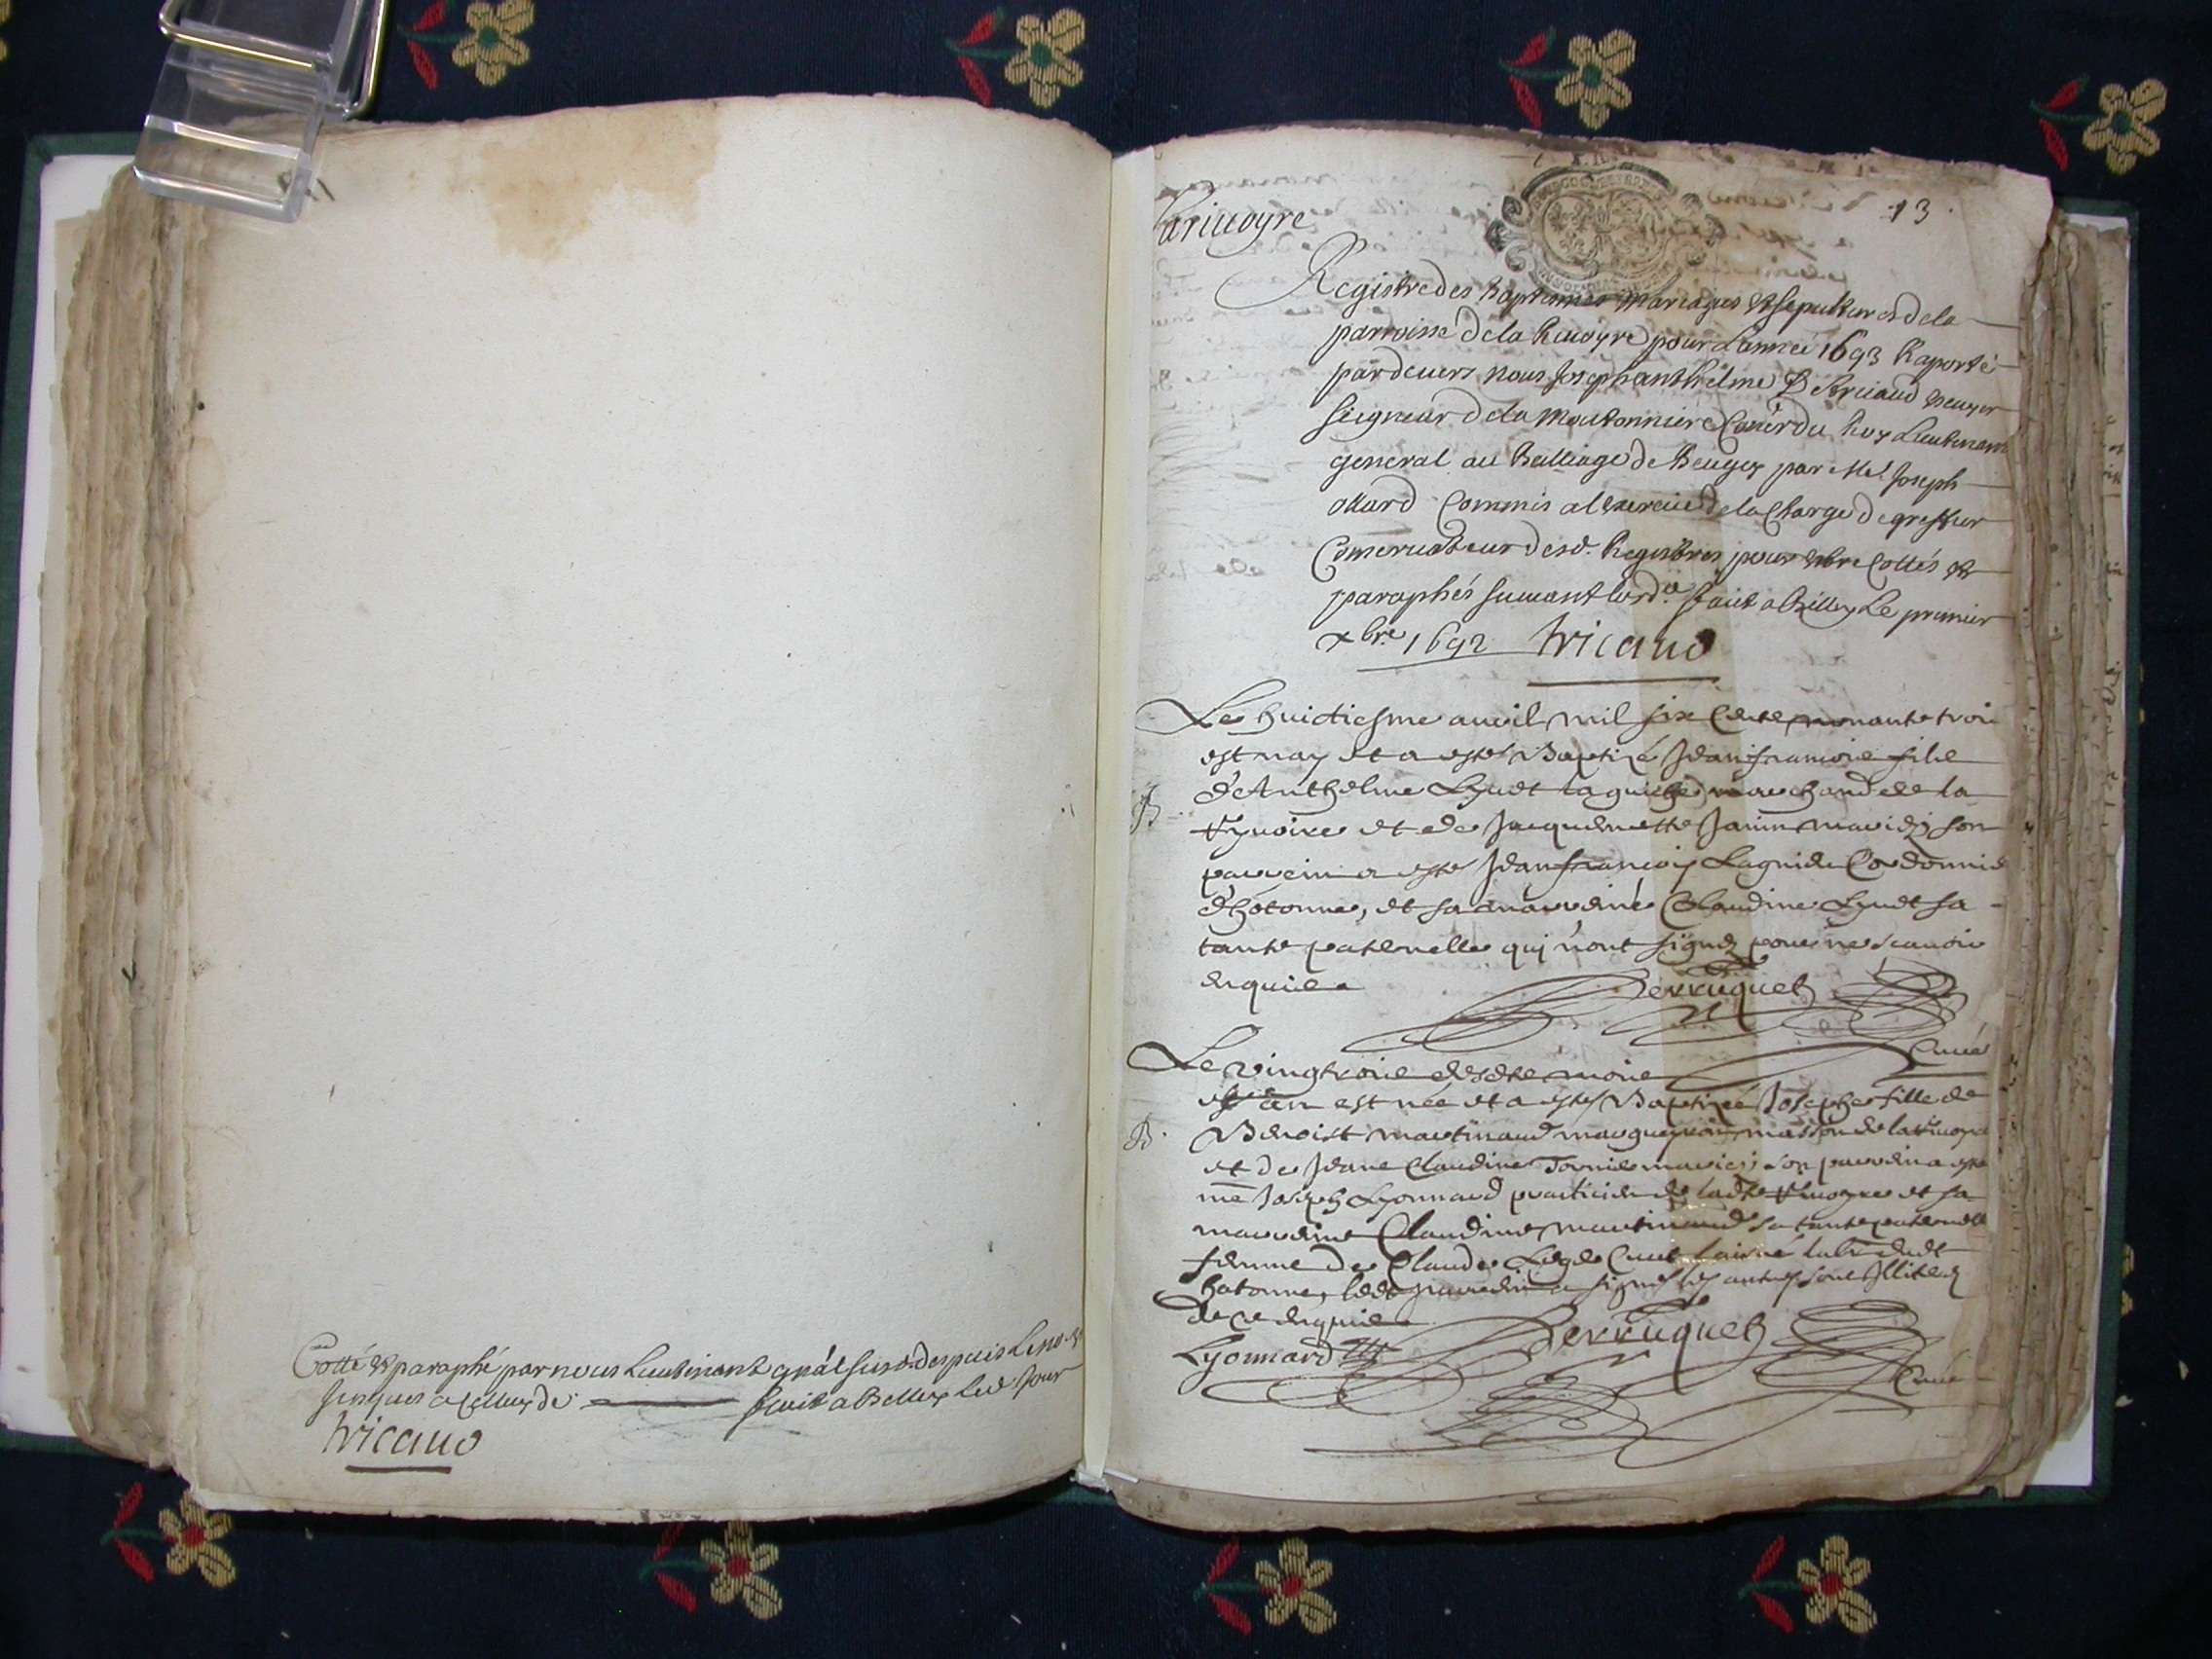 Cotté & paraphé par nous Lieutenant gnâl susd. despuis Le
jusques a Celluy de fait a Belley Led Jour
tricaud
13
Lariuoyre
Registre des baptesmes mariages & sepultures de la
parroisse de la Riuoyre pour Lannée 1693 Raporté
pardeuers nous Joseph anthelme De tricaud escuyer
seigneur de la Moutonniere Coner du Roy Lieutenant
general au Balliage de Beugey par Me. Joseph
ollard Commis a lexercice de la Charge de greffier
Conseruateur desd. Registres pour estre Cottés &
paraphés suiuant lord.ce fait a Belley Le premier
xbre 1692 tricaud
Le huictiesme auril mil six Cents nonante trois
est nay et a esté Baptizé Jean francois fils
d'Anthelme Lyuet marchand de la
B.
Riuoire et de Jacquemette Janin mariez son
parrein a esté Jean francois Cordonnie
d'hotonne, et sa marreine Claudine Lyuet sa
tante paternelle qui n'ont signez pour ne scauoir
enquis.
Perruquet
Curé
Le vingtrois desdts mois
et an est née et a esté Baptizée Josephe fille de
B.
Benoist martinaud masson de la Riuoyre
et de Jeane Claudine mariés son parrein a esté
me Joseph Lyonnard practicien de ladte Riuoyre et sa
marreine Claudine martinaud sa tante paternelle
femme de Claude
hotonne, ledt parrein a signé les autres sont Illiterez
de ce enquis.
Lyonnard Perruquet
Curé